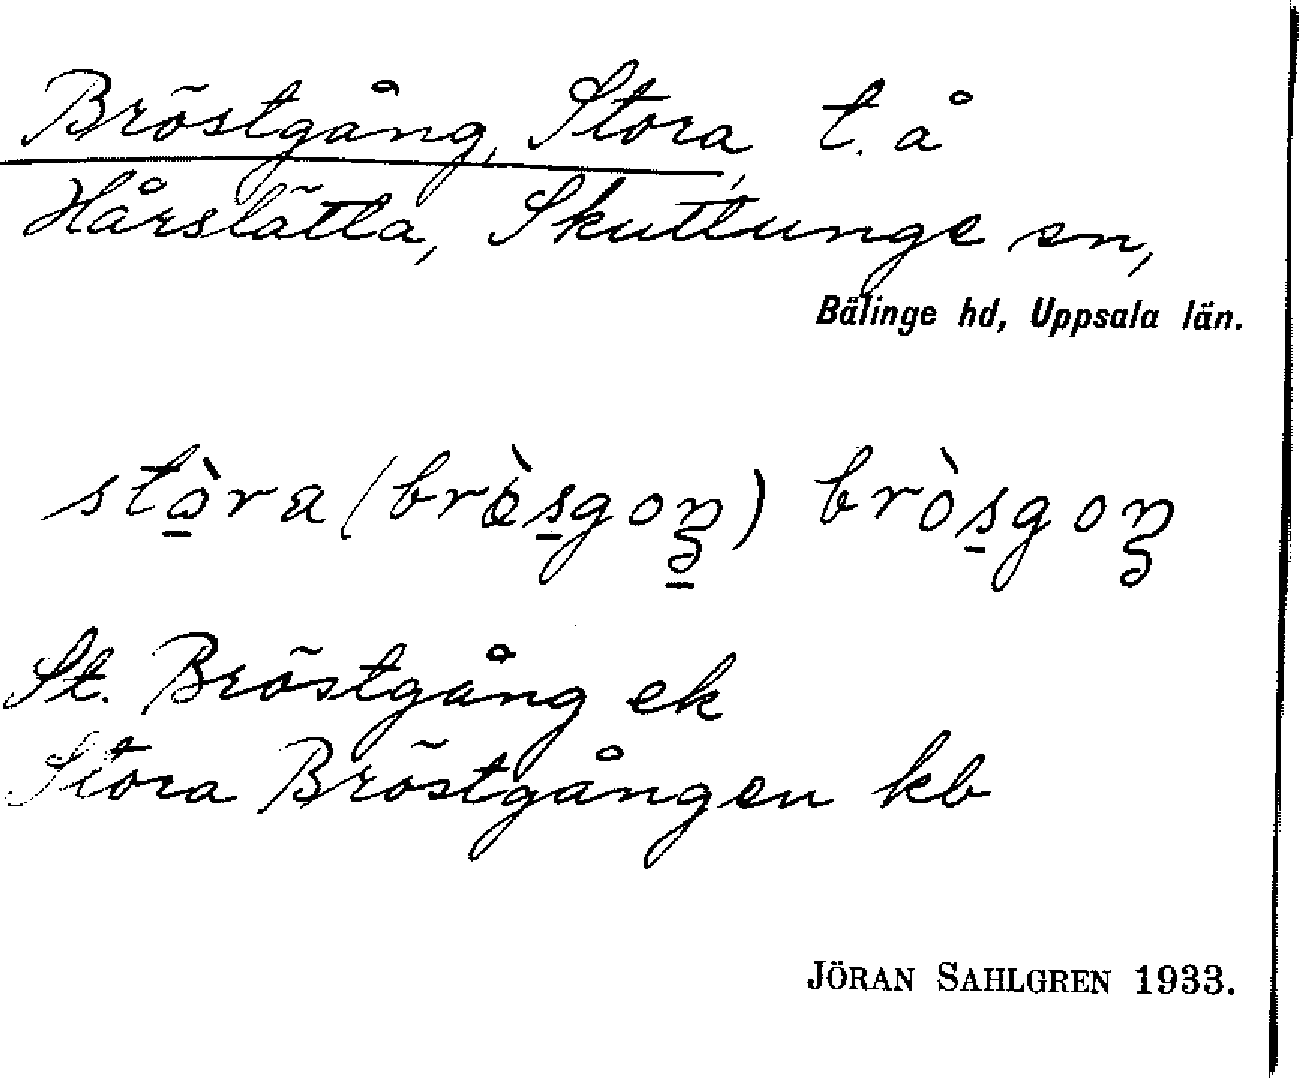 Bröstgång, Stora, t. å
Hårslätta, Skuttunge sn,
Bälinge hd, Uppsala län.
St. Bröstgång ek
Stora Bröstgången kb
JÖRAN SAHLGREN 1933.